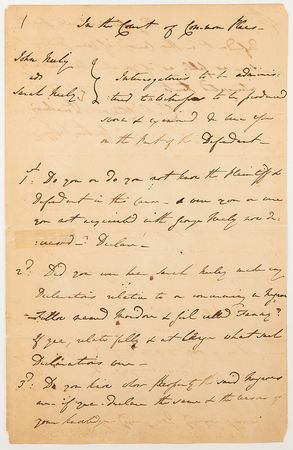 1 In the Court of Common Pleas —
John Neely
ads
Sarah Neely
Interrogatories to be adminis-
tered to witnesses to be produced
sworn & examined in this case
on the Part of the Defendant —
1st: Do you or do you not know the Plaintiff &
Defendant in this case — & were you or were
you not acquainted with George Neely now de-
ceased — Declare —
2d: Did you ever hear Sarah Neely make any
Declarations relative to or concerning a Negroe
Fellow named & Gal called Fanny?
If yea, relate fully & at large what such
Declarations were —
3d: Do you know whose Property the said Negroes
are — if yea, declare the same & the reasons of
your knowledge